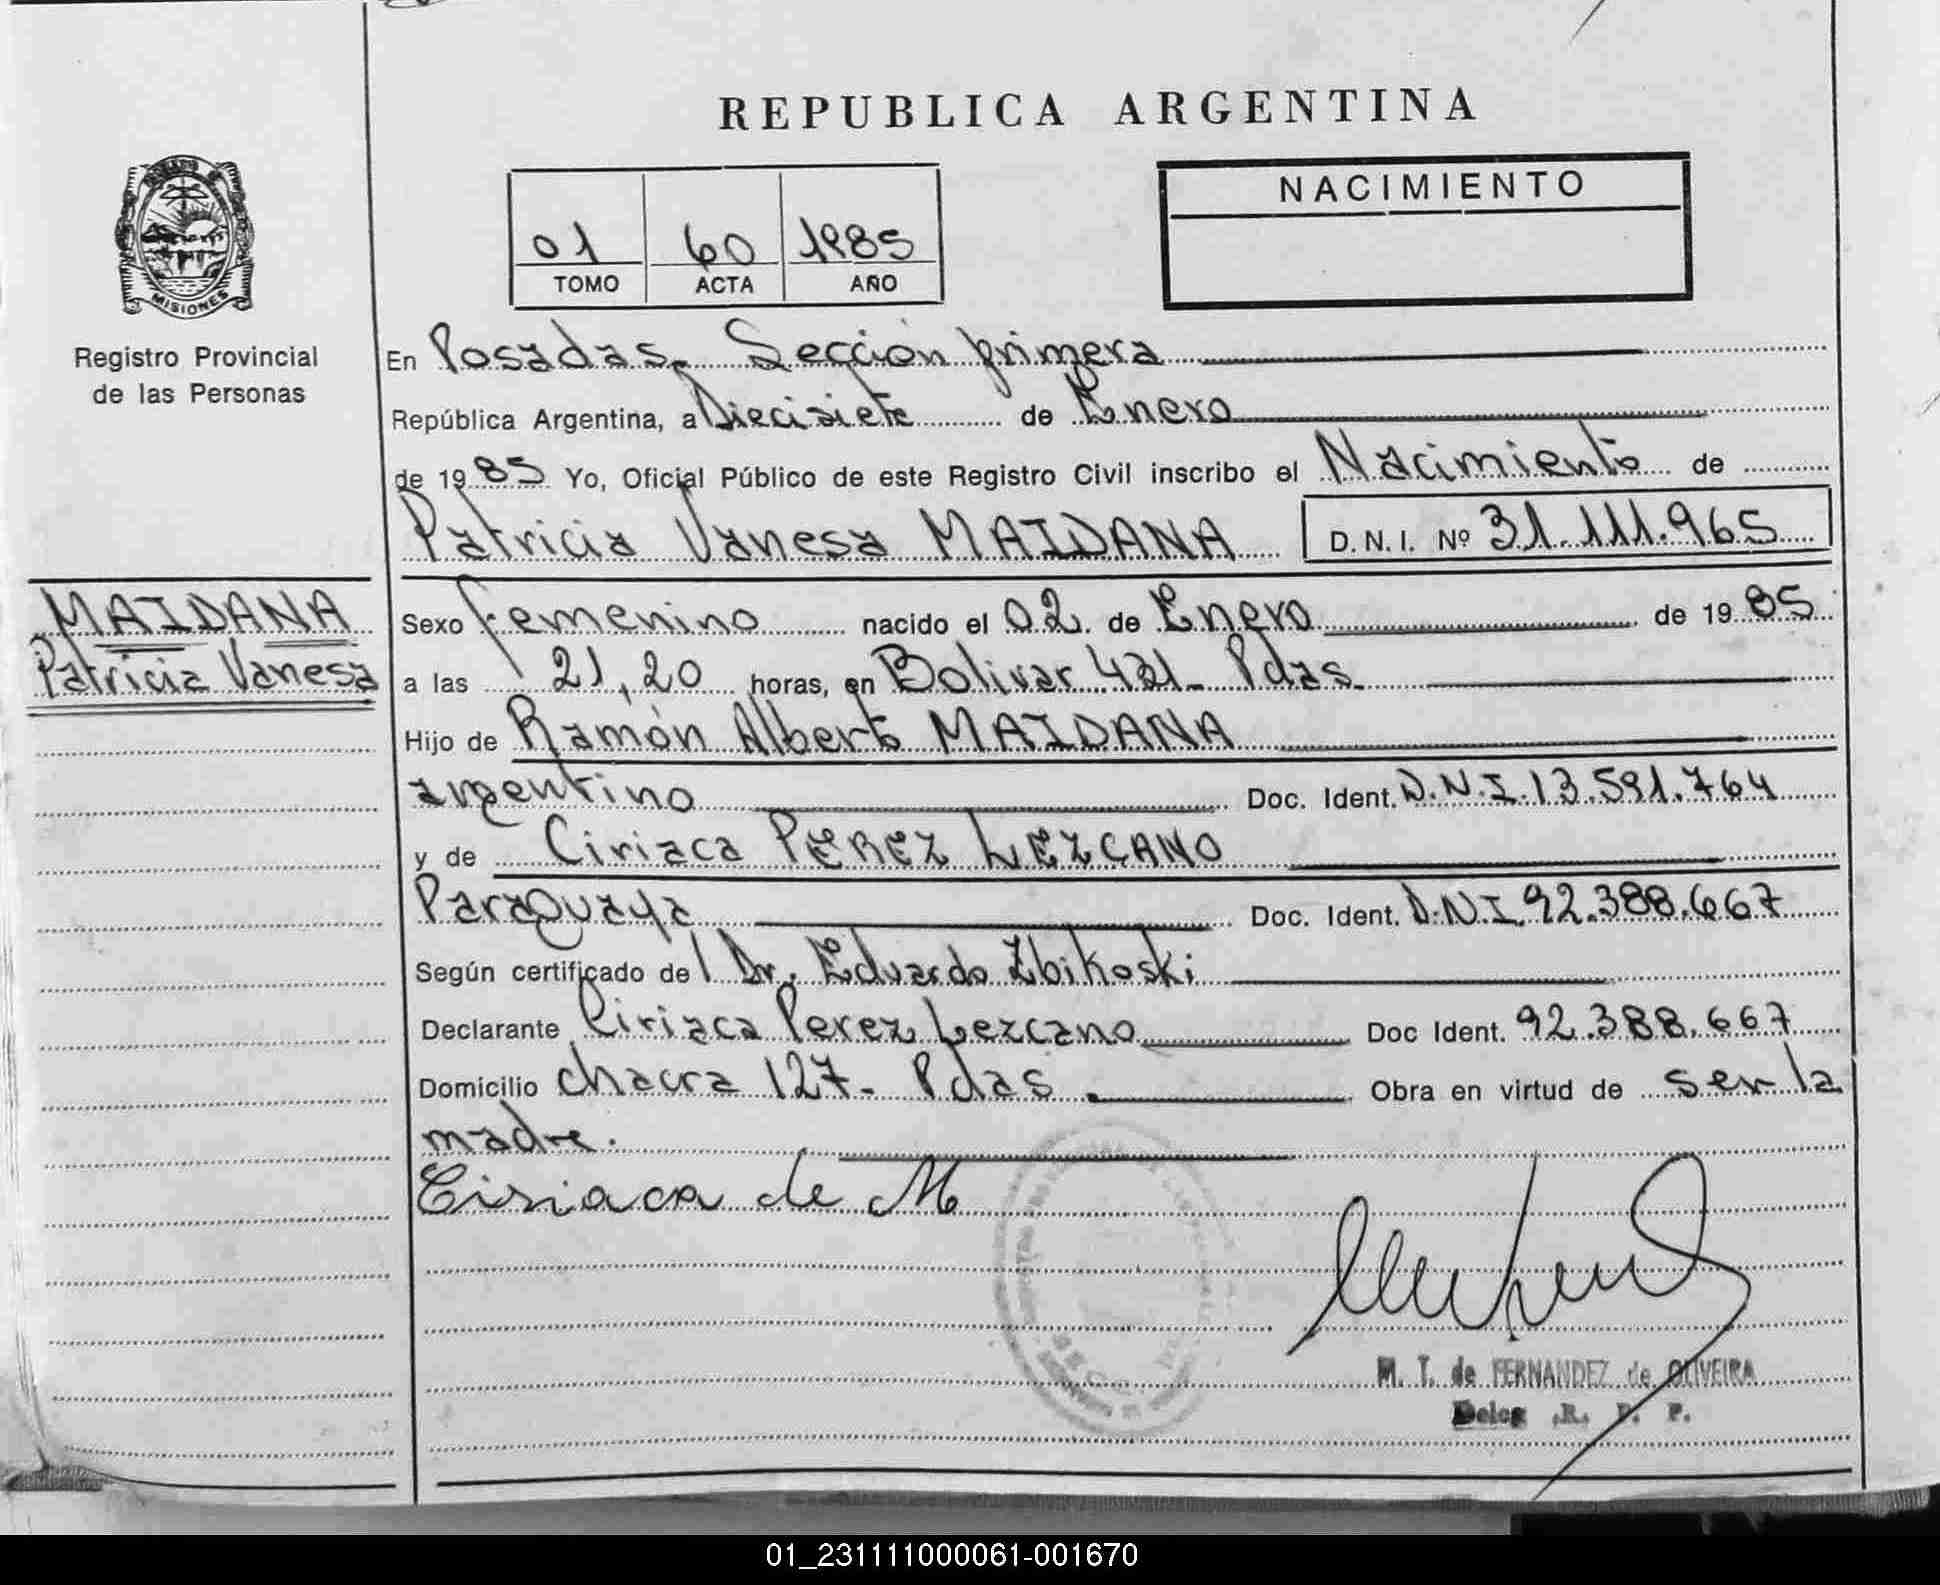 REPUBLICA ARGENTINA
01 60 1985
TOMO ACTA AÑO
NACIMIENTO
MISIONES
Registro Provincial
de las Personas
En Posadas, Sección primera
República Argentina, a Diecisiete de Enero
de 1985 Yo, Oficial Público de este Registro Civil inscribo el Nacimiento de
Patricia Vanesa MAIDANA D.N.I. Nº 31.111.965
MAIDANA
Patricia Vanesa
Sexo femenino nacido el 02 de Enero de 1985
a las 21,20 horas, en Bolivar 421- Pdas.
Hijo de Ramón Alberto MAIDANA
argentino Doc. Ident. D.N.I. 13.591.764
y de Ciriaca PEREZ LEZCANO
Paraguaya Doc. Ident. D.N.I. 92.388.667
Según certificado del Dr. Eduardo Zbikoski
Declarante Ciriaca Perez Lezcano Doc Ident. 92.388.667
Domicilio chacra 127- Pdas. Obra en virtud de ser la
madre.
Ciriaca de M
M. T. de FERNANDEZ de OLIVEIRA
Deleg. R. P. P.
01_231111000061-001670